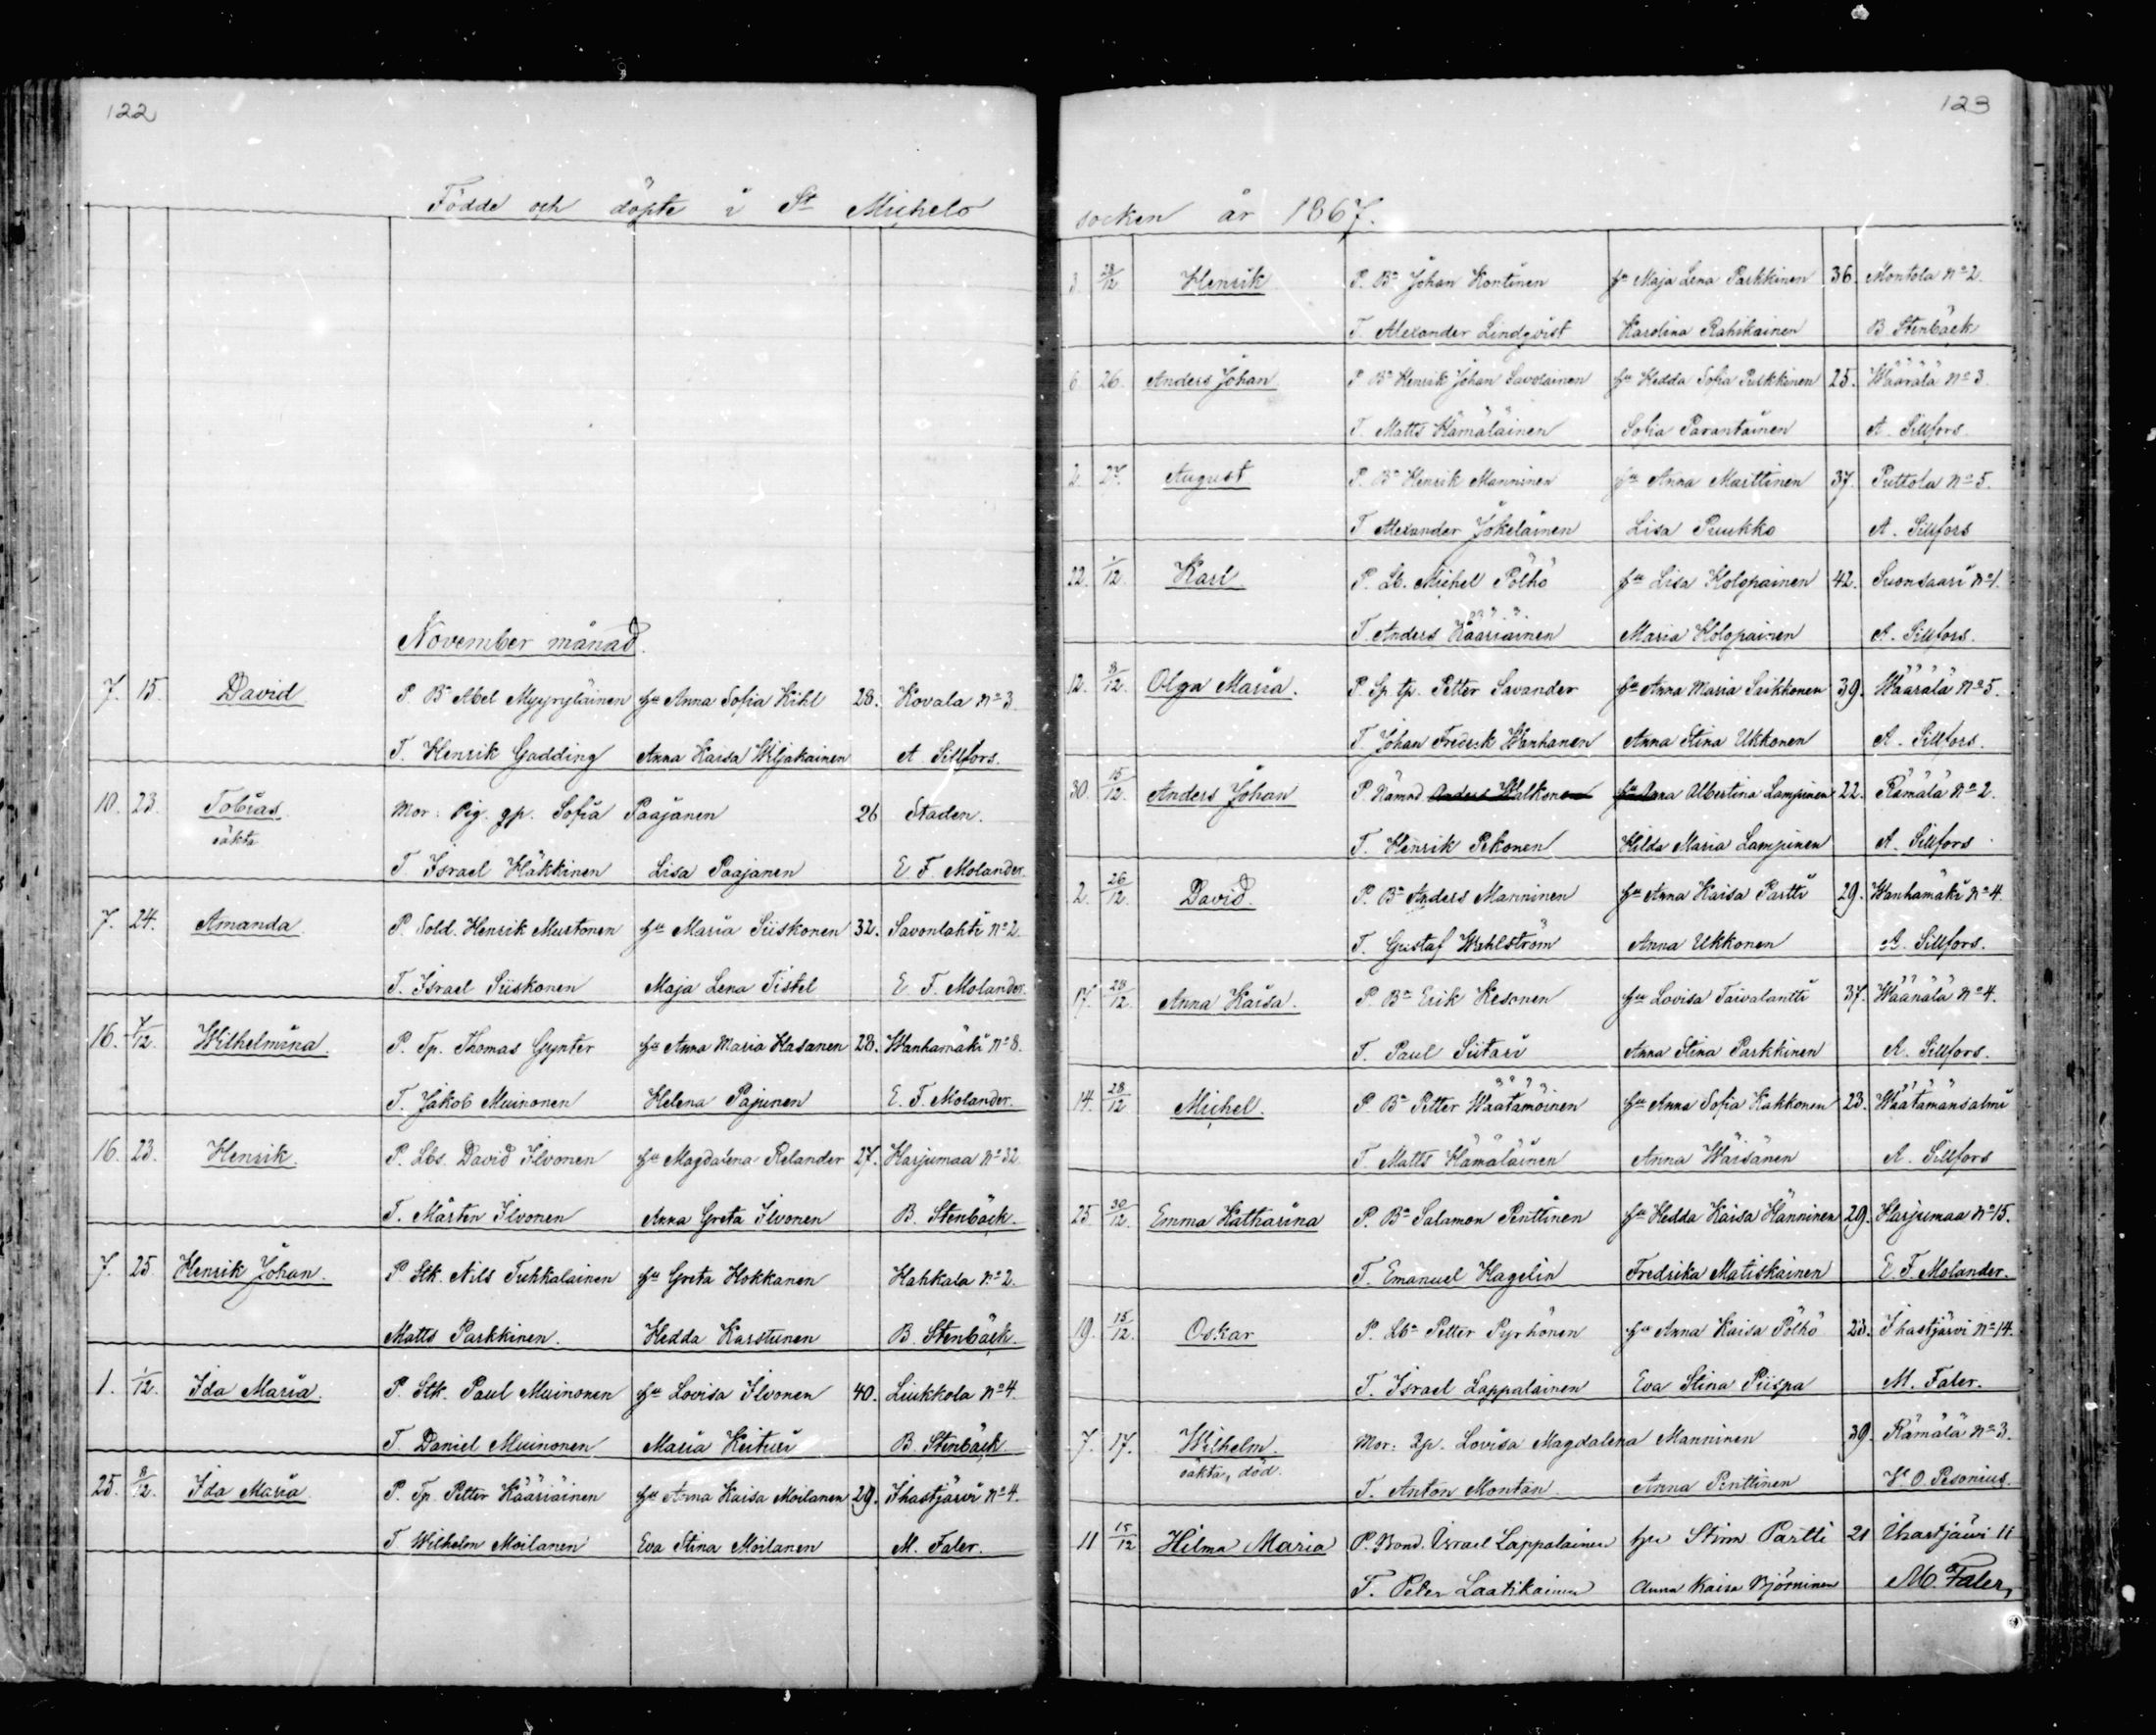 122
Födde och döpte i St Michels
November månad.
7. 15. David P. Bn Abel Myyryläinen hu Anna Sofia Kihl 28. Kovala No 3.
T. Henrik Gadding Anna Kaisa Wiljakainen A. Sillfors.
10. 23. Tobias Mor: Pig. gp. Sofia Paajanen 26 Staden.
oäkta
T. Israel Häkkinen Lisa Paajanen E. F. Molander.
7. 24. Amanda P. Sold. Henrik Mustonen hu Maria Siiskonen 32. Savonlahti No 2.
T. Israel Siiskonen Maja Lena Tistel E. F. Molander.
16. 7/12. Wilhelmina. P. Tp. Thomas Gynter hu Anna Maria Hasanen 28. Wanhamäki No 8.
T. Jakob Muinonen Helena Pajunen E. F. Molander.
16. 23. Henrik. P. Lbs. David Ilvonen hu Magdalena Relander 27. Harjumaa No 32.
T. Mårten Ilvonen Anna Greta Ilvonen B. Stenbäck.
7. 25. Henrik Johan. P. Stk. Nils Tuhkalainen hu Greta Hokkanen Hahkala No 2.
Matts Parkkinen. Hedda Karstunen B. Stenbäck.
1. 1/12. Ida Maria. P. Stk. Paul Muinonen hu Lovisa Ilvonen 40. Liukkola No 4.
T. Daniel Muinonen Maria Keituri B. Stenbäck
25. 8/12. Ida Maria P. Tp. Petter Kääriäinen hu Anna Kaisa Moilanen 29. Ihastjärvi No 4.
T. Wilhelm Moilanen Eva Stina Moilanen M. Faler.
123
socken år 1867.
3. 28/12 Henrik P. Bn Johan Kontinen hu Maja Lena Parkkinen 36. Montola No 2.
T. Alexander Lindqvist Karolina Rahikainen B. Stenbäck
6. 26. Anders Johan. P. Bn Henrik Johan Savolainen hu Hedda Sofia Pulkkinen 25. Wäärälä No 3.
T. Matts Hämäläinen Sofia Parantainen A. Sillfors.
2. 27. August P. Bn Henrik Manninen hu Anna Marttinen 37. Puttola No 5.
T. Alexander Jokelainen Lisa Puukko A. Sillfors
22. 1/12. Karl P. Lb. Michel Pölhö hu Lisa Holopainen 42. Suonsaari No 1.
T. Anders Kääriäinen Maria Holopainen A. Sillfors.
12. 8/12. Olga Maria. P. Sp. tp. Petter Savander hu Anna Maria Saikkonen 39. Wäärälä No 5.
T. Johan Fredrik Wanhanen Anna Stina Ukkonen A. Sillfors.
30. 15/12. Anders Johan P. Rämnd. Anders Walkonen hu Anna Albertina Lampinen 22. Rämälä No 2.
T. Henrik Pekonen Hilda Maria Lampinen A. Sillfors
2. 26/12. David. P. Bn Anders Manninen hu Anna Kaisa Partti 29. Wanhamäki No 4.
T. Gustaf Wahlström Anna Ukkonen A. Sillfors.
17. 28/12. Anna Kaisa. P. Bn Erik Kesonen hu Lovisa Taivalantti 37. Wäänälä No 4.
T. Paul Siitari Anna Stina Parkkinen A. Sillfors.
14. 28/12 Michel. P. Bn Petter Wäätämöinen hu Anna Sofia Kakkonen 23. Wäätämänsalmi
T. Matts Hämäläinen Anna Wäisänen A. Sillfors
25. 30/12. Emma Katharina P. Bn Salamon Penttinen hu Hedda Kaisa Hänninen 29. Harjumaa No 15.
T. Emanuel Hagelin Fredrika Matiskainen E. F. Molander.
19. 15/12. Oskar P. Lbn Petter Pyrhönen hu Anna Kaisa Pölhö 23. Ihastjärvi No 14.
T. Israel Lappalainen Eva Stina Piispa M. Faler.
7. 17. Wilhelm. Mor: Lovisa Magdalena Manninen 39. Rämälä No 3.
oäkta, död. T. Anton Montan. Anna Penttinen O. Pesonius.
11 15/12 Hilma Maria P. Bond. Israel Lappalainen hu Stina Partti 21 Ihastjärvi 11
T. Peter Laatikainen Anna Kaisa Björninen M. Faler,